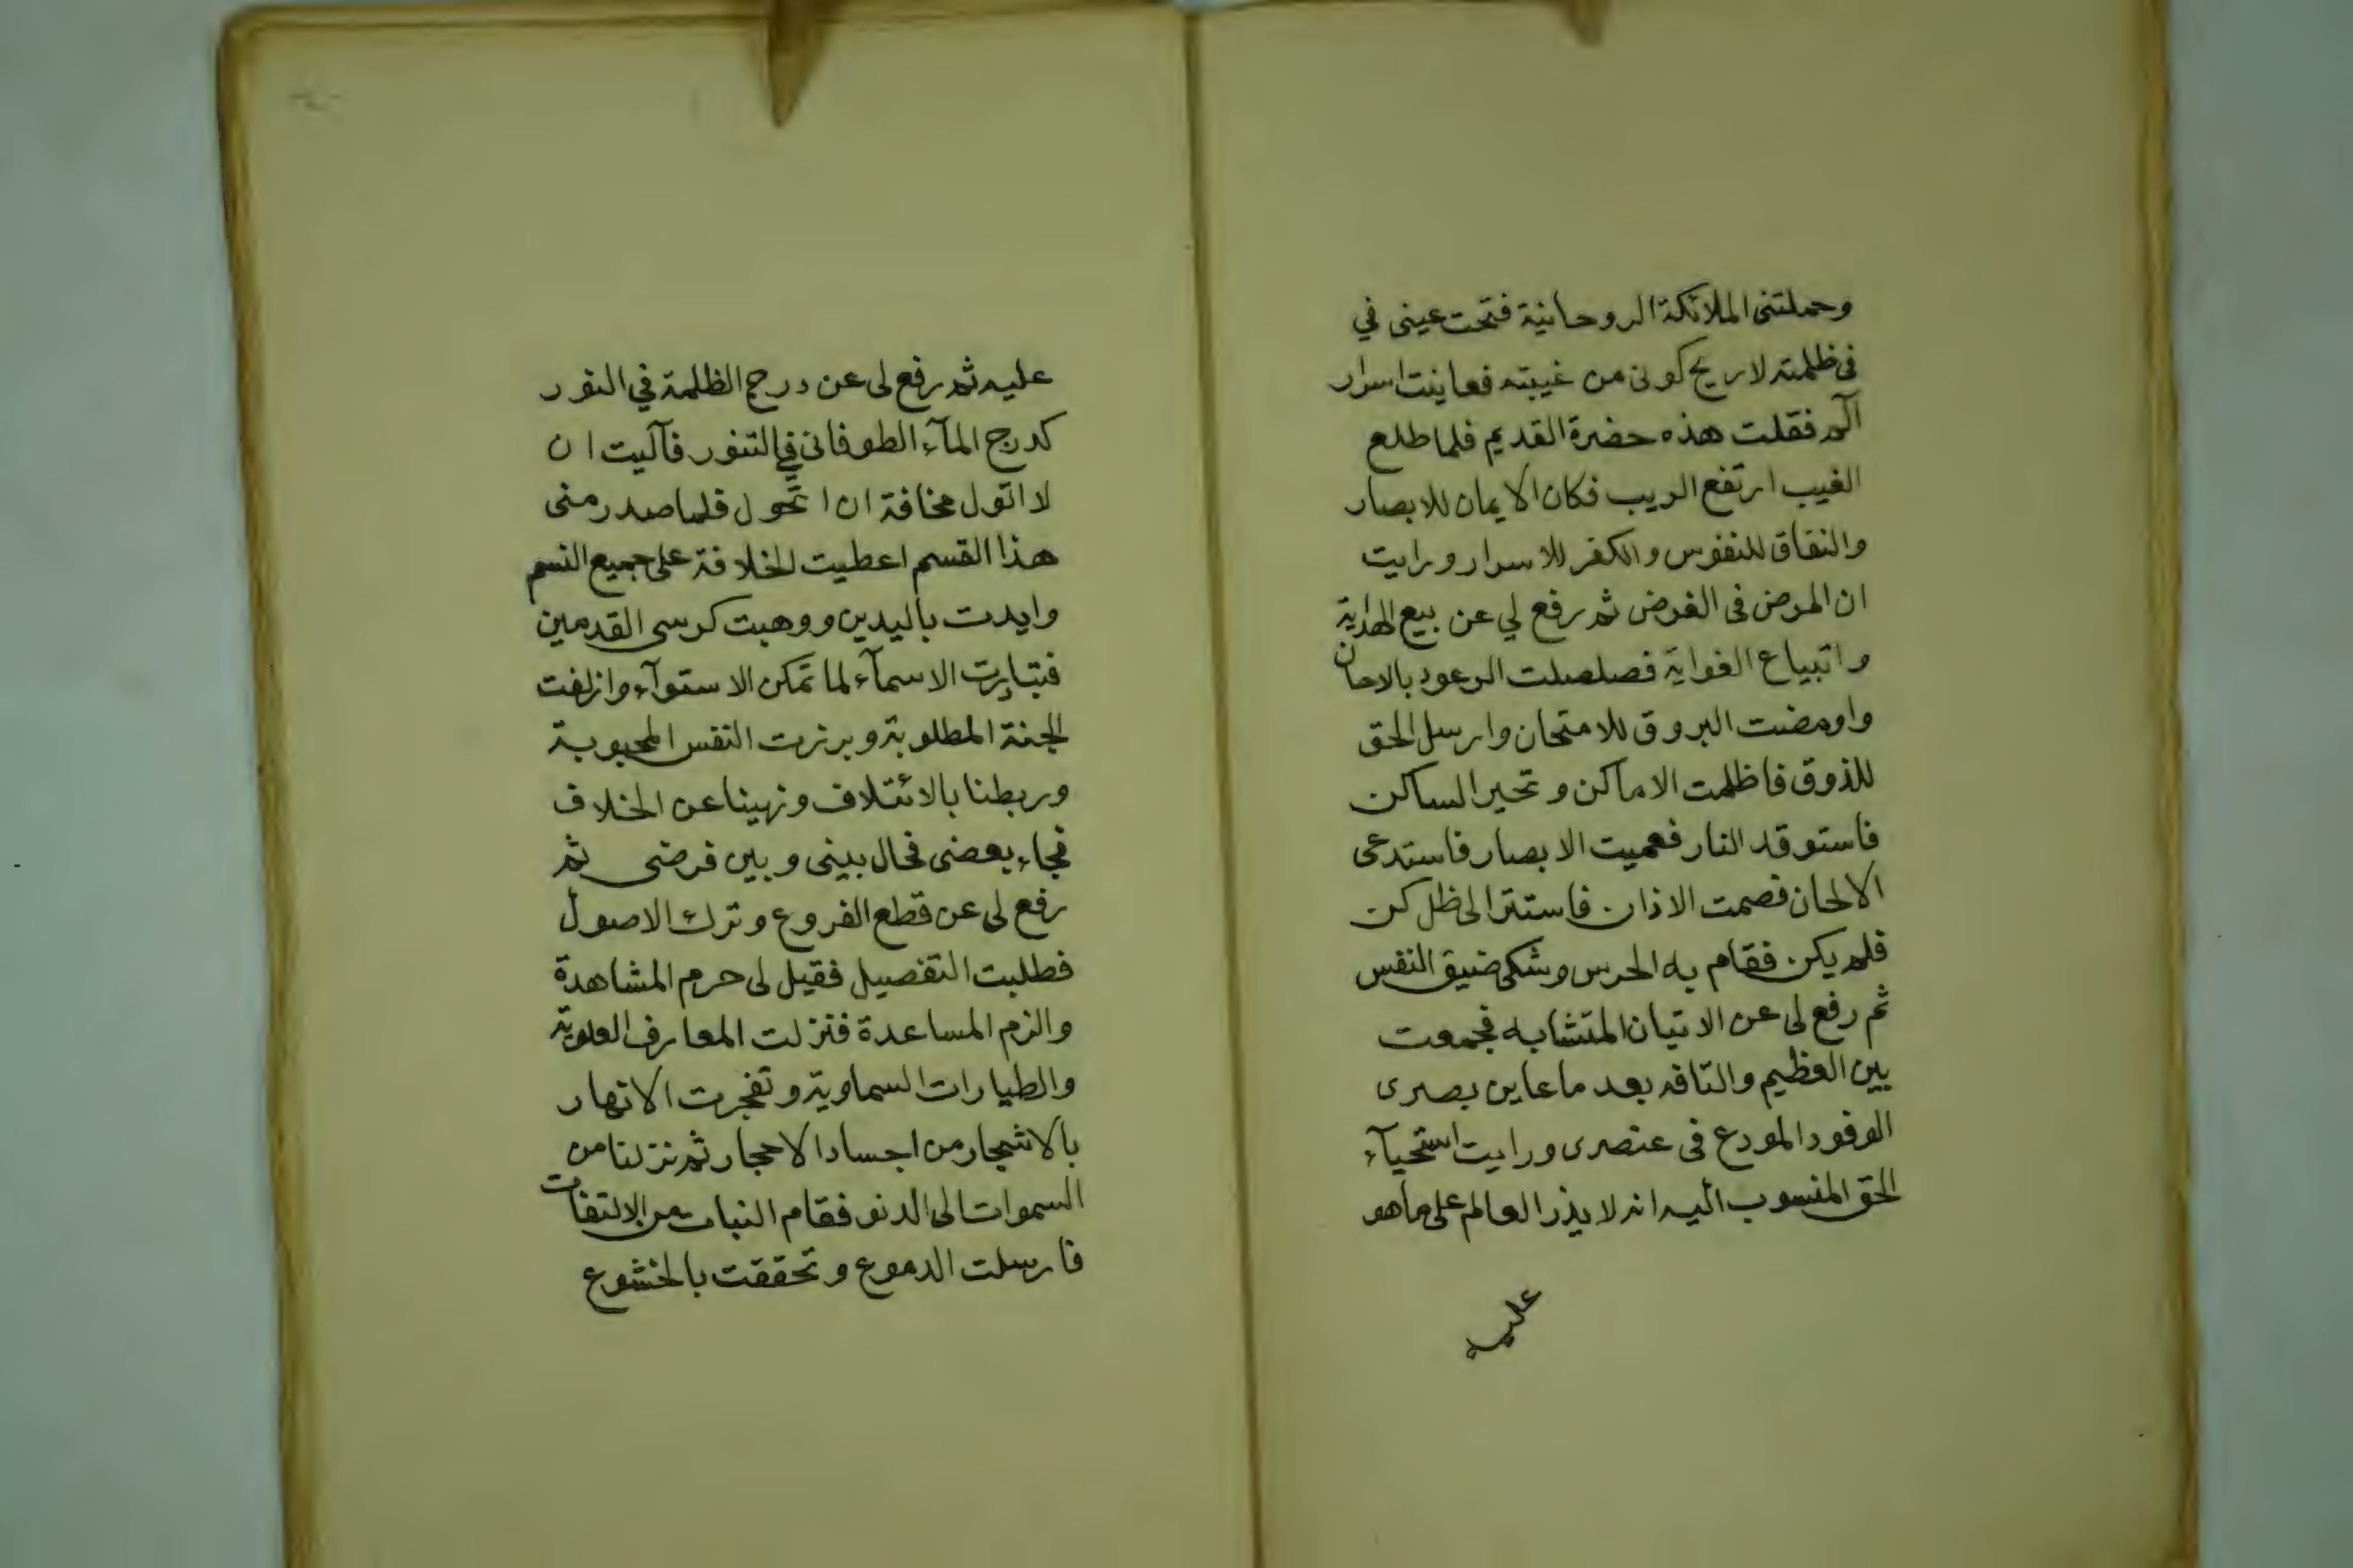 وحملتنى الملائكة الروحانية فتحت عينى في
فى ظلمته لاريح كونى من غيبته فعاينت اسرار
آلم فقلت هذه حضرة القديم فلما طلع
الغيب ارتفع الريب فكان الايمان للابصار
والنفاق للنفوس والكفر للاسرار ورايت
ان المرض فى الغرض ثم رفع لي عن بيع الهداية
واتبياع الغواية فصلصلت الرعود بالاحان
واومضت البروق للامتحان وارسل الحق
للذوق فاظلمت الاماكن وتحير الساكن
فاستوقد النار فعميت الابصار فاستدعى
الالحان فصمت الاذان فاستتر الى ظل كن
فلم يكن فقام به الحرس وشكى ضيق النفس
ثم رفع لى عن الاتيان المتشابه فجمعت
بين العظيم والتافه بعد ما عاين بصرى
الوقود المودع فى عنصرى ورايت استحيآء
الحق المنسوب اليه انه لا يذر العالم على ما هو
عليه
عليه ثم رفع لى عن درج الظلمة في النور
كدرج المآء الطوفانى في التنور فآليت ان
لا اتول مخافة ان اتحول فلما صدر منى
هذا القسم اعطيت الخلافة على جميع النسم
وايدت باليدين ووهبت كرسى القدمين
فتبادرت الاسمآء لما تمكن الاستوآء وازلفت
الجنة المطلوبة وبرزت النفس المحبوبة
وربطنا بالائتلاف ونهينا عن الخلاف
فجاء بعضى فحال بينى وبين فرضى ثم
رفع لى عن قطع الفروع وترك الاصول
فطلبت التفصيل فقيل لى حرم المشاهدة
والزم المساعدة فنزلت المعارف العلوية
والطيارات السماوية وتفجرت الانهار
بالاشجار من اجساد الاحجار ثم نزلنا من
السموات الى الدنو فقام النبات من الالتفات
فارسلت الدموع وتحققت بالخشوع